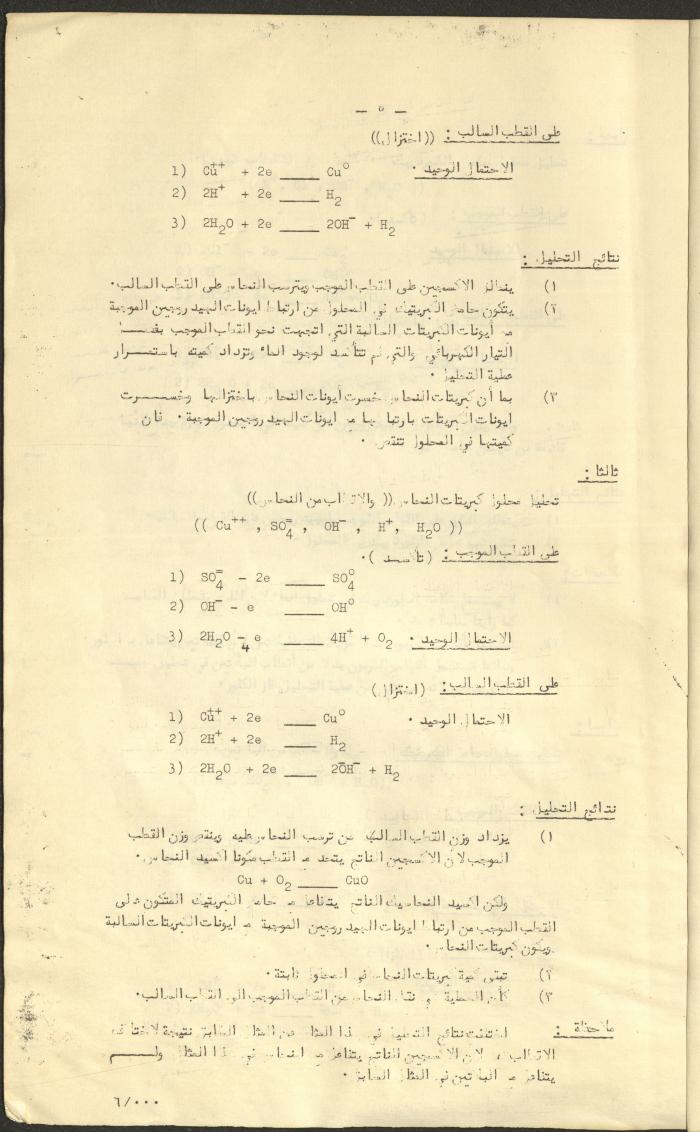 — ٥ —
على القطب السالب : ((اختزال))
1) Cu++ + 2e ____ Cu° الاحتمال الوحيد ٠
2) 2H+ + 2e ____ H2
3) 2H2O + 2e ____ 2OH- + H2
نتائج التحليل :
١) الاكسجين على القطب الموجب ويترسب النحاس على القطب السالب ٠
٢) يتكون حامض الكبريتيك في المحلول من ارتباط ايونات الهيدروجين الموجبة
مع أيونات الكبريتات السالبة التي اتجهت نحو القطب الموجب بفعل
التيار الكهربائي والتي لم تتأكسد لوجود الماء وتزداد كميته باستمرار
عملية التحليل ٠
٣) بما أن كبريتات النحاس خسرت أيونات النحاس باختزالها وخسرت
ايونات الكبريتات بارتباطها مع ايونات الهيدروجين الموجبة ٠ فان
كميتها في المحلول تنقص ٠
ثالثا :
تحليل محلول كبريتات النحاس (( والاقطاب من النحاس))
(( Cu++ , SO4= , OH- , H+, H2O ))
على القطب الموجب : (تأكسد) ٠
1) SO4= - 2e ____ SO4°
2) OH- - e ____ OH°
3) 2H2O - 4e ____ 4H+ + O2 الاحتمال الوحيد ٠
على القطب السالب : (اختزال)
1) Cu++ + 2e ____ Cu° الاحتمال الوحيد ٠
2) 2H+ + 2e ____ H2
3) 2H2O + 2e ____ 2OH- + H2
نتائج التحليل :
١) يزداد وزن القطب السالب من ترسب النحاس عليه وينقص وزن القطب
الموجب لأن الاكسجين الناتج يتحد مع القطب مكونا اكسيد النحاس ٠
Cu + O2 ____ CuO
ولكن اكسيد النحاسيك الناتج يتفاعل مع حامض الكبريتيك المتكون على
القطب الموجب من ارتباط ايونات الهيدروجين الموجبة مع ايونات الكبريتات السالبة
ويكون كبريتات النحاس ٠
٢) تبقى كمية كبريتات النحاس في المحلول ثابتة ٠
٣) كأن العملية هي نقل النحاس من القطب الموجب الى القطب السالب ٠
ملاحظة : اختلفت نتائج التحليل في هذا المثال عن المثال السابق نتيجة لاختلاف
الاقطاب ، لان الاكسجين الناتج يتفاعل مع النحاس في هذا المثال ولم
يتفاعل مع البلاتين في المثال السابق ٠
٦/٠٠٠